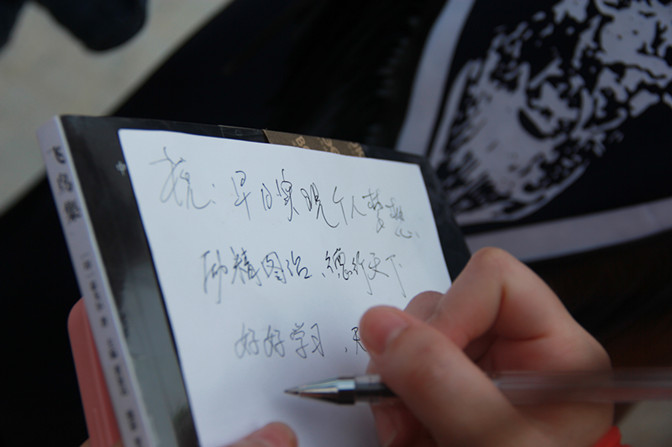 祝：早日实现个人梦想、
励精图治、德行天下
好好学习、天